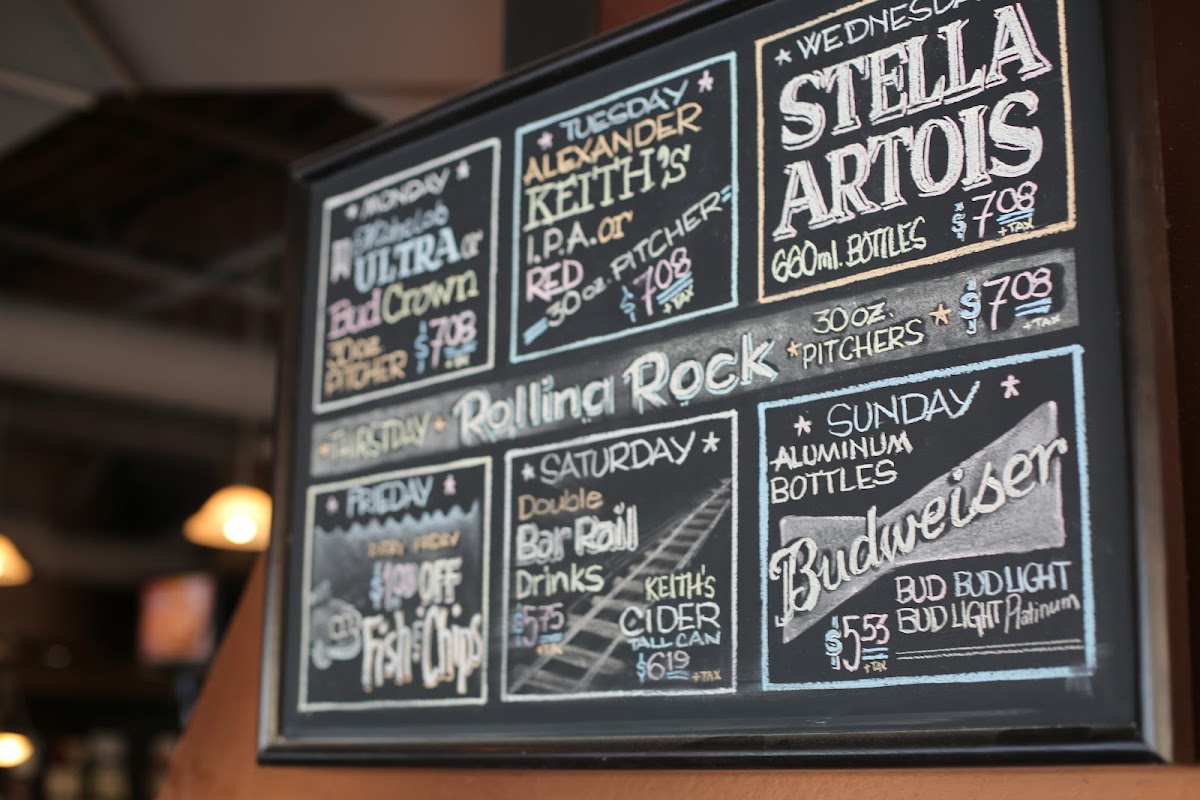 * MONDAY *
Michelob
ULTRA or
Bud Crown
30 oz.
PITCHER $7.08
+TAX
* TUESDAY *
ALEXANDER
KEITH'S
I.P.A. or
RED
30 oz. PITCHER
$7.08
+TAX
* WEDNESDAY
STELLA
ARTOIS
660ml. BOTTLES $7.08
+TAX
*THIRSTDAY* Rolling Rock * 30 oz. PITCHERS * $7.08
+TAX
* FRIEDAY *
EVERY FRIDAY
$1.00 OFF
Fish & Chips
* SATURDAY *
Double
Bar Rail
Drinks
$5.75
+TAX
KEITH'S
CIDER
TALL CAN
$6.19
+TAX
* SUNDAY *
ALUMINUM
BOTTLES
Budweiser
BUD BUD LIGHT
BUD LIGHT Platinum
$5.53
+TAX